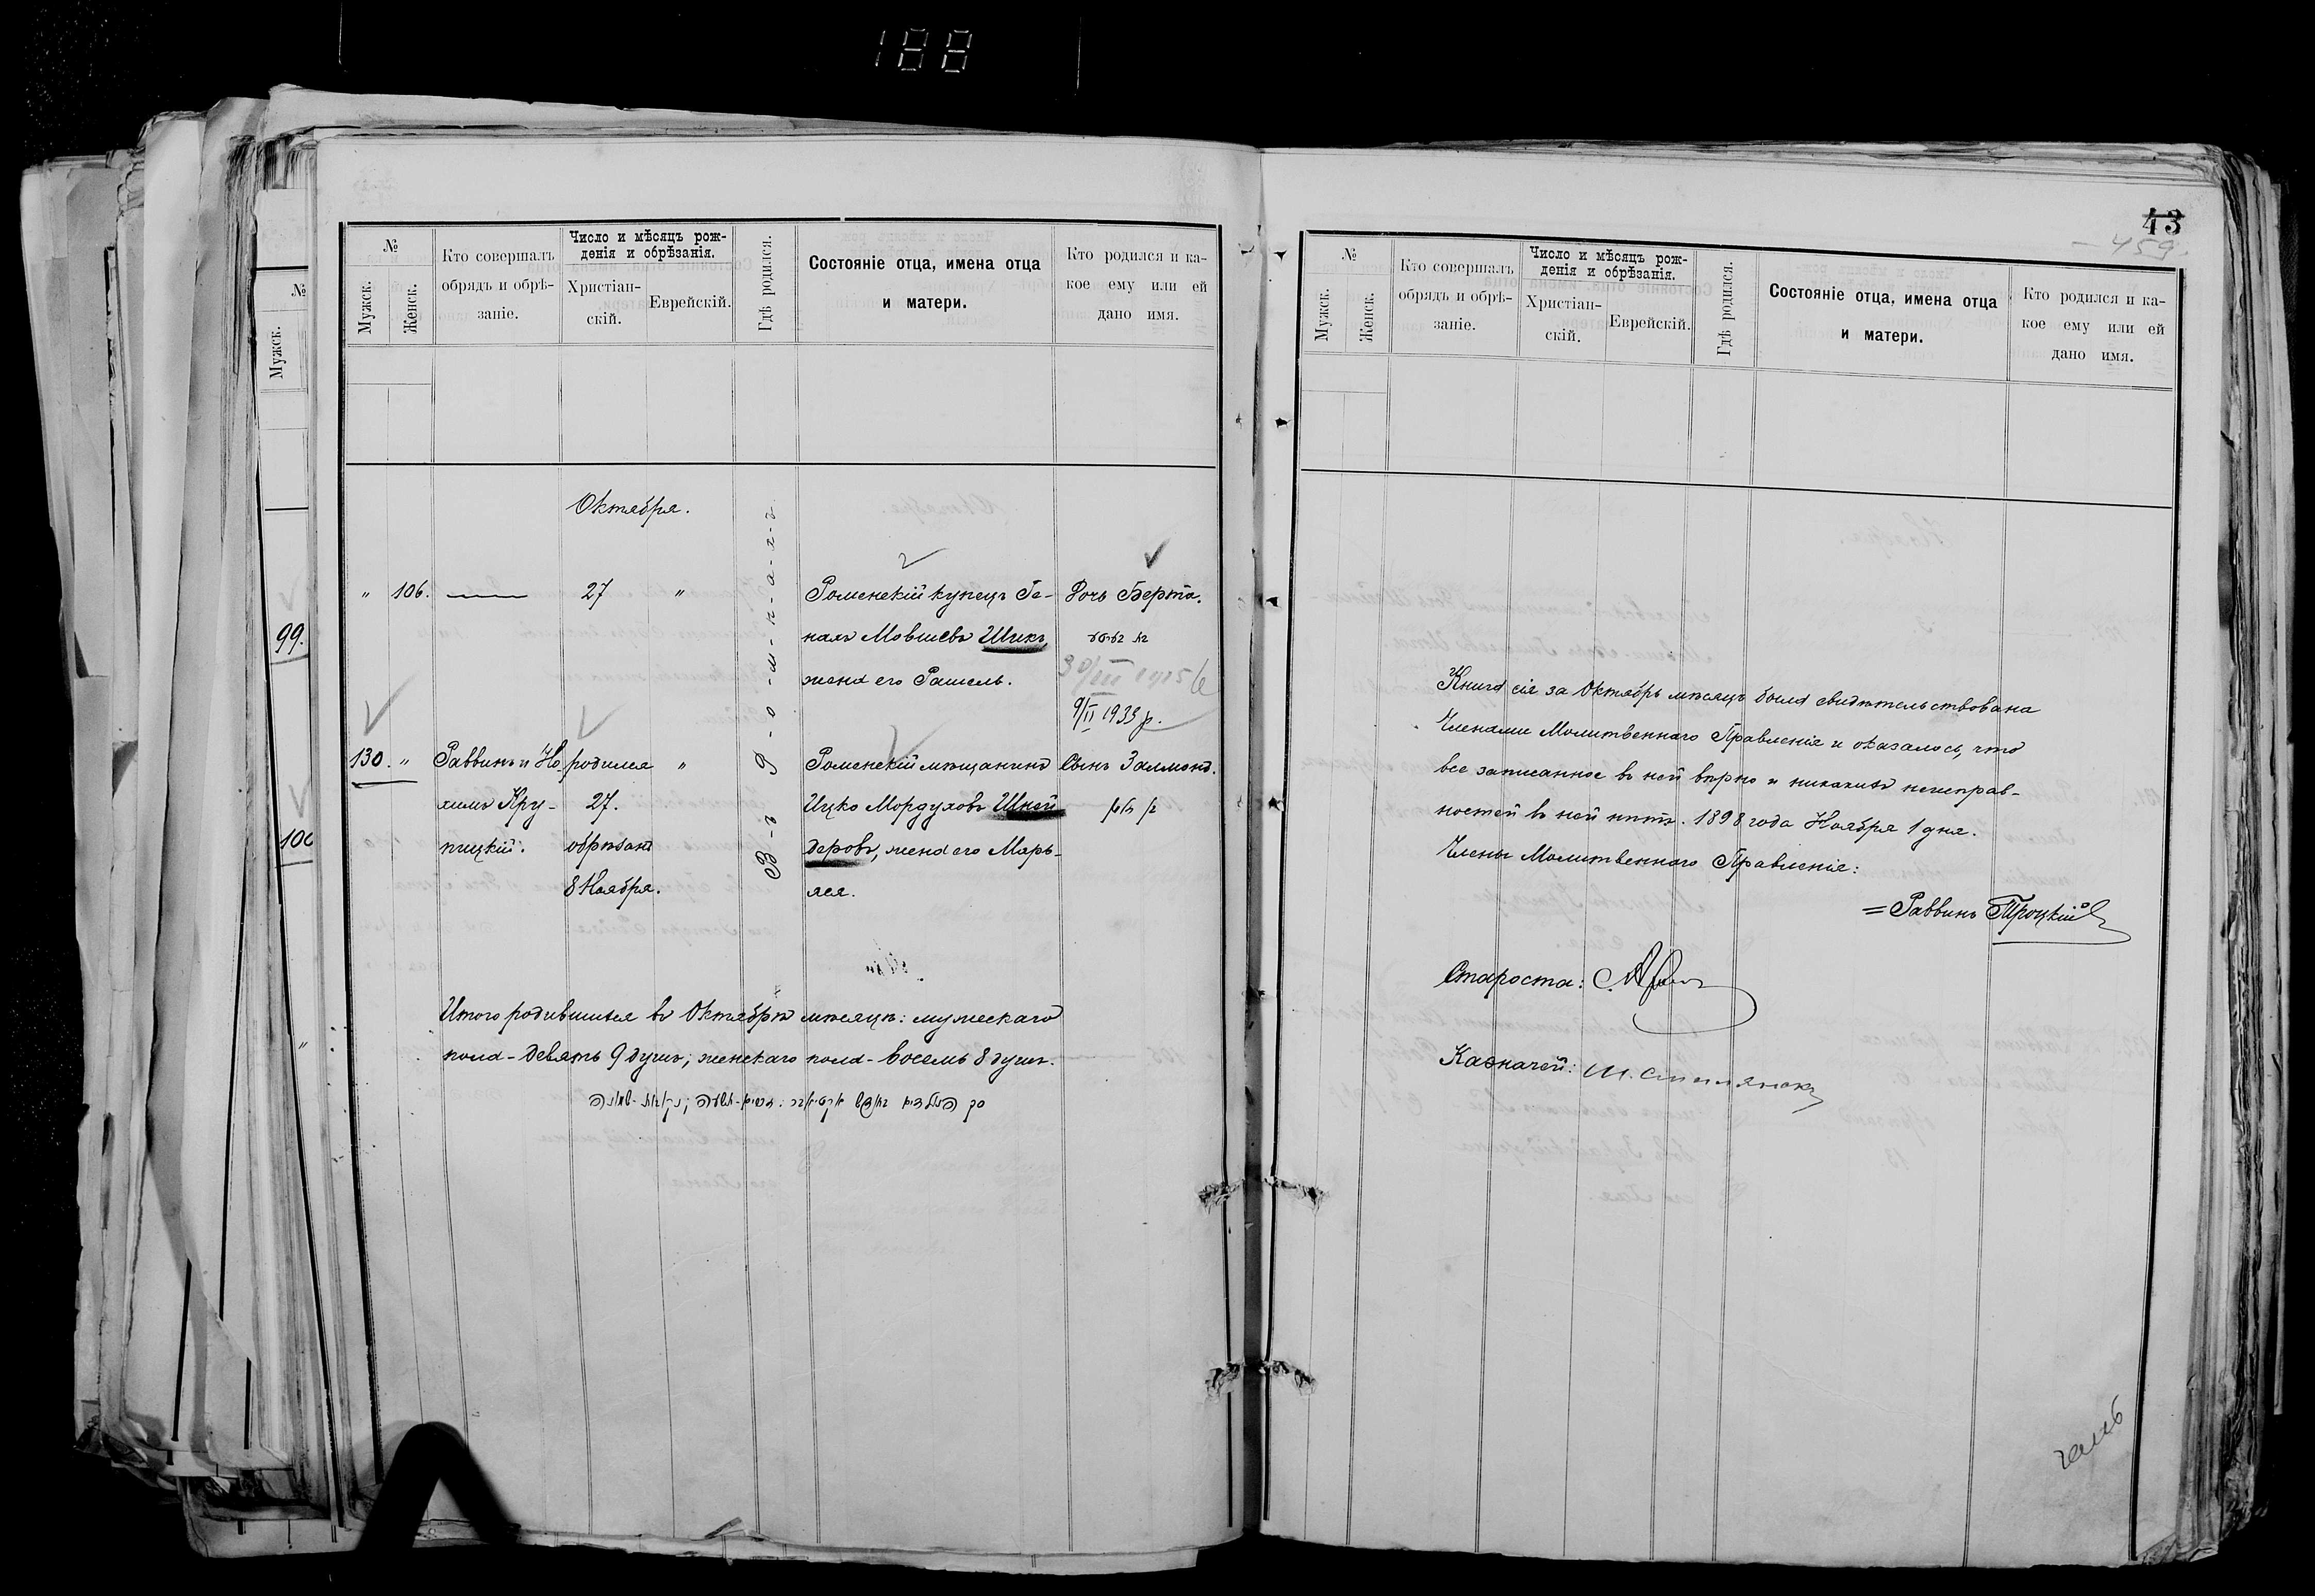 188
№
Мужск.
99.
100
"
№
Мужск.
Женск.
Кто совершалъ
обрядъ и обрѣ-
заніе.
Число и мѣсяцъ рож-
денія и обрѣзанія.
Христіан-
скій.
Еврейскій.
Гдѣ родился.
Состояніе отца, имена отца
и матери.
Кто родился и ка-
кое ему или ей
дано имя.
Октября.
В-ъ Р-о-м-н-а-х-ъ
" 106. — 27 "
Роменскій купецъ Ге-
нахъ Мовшевъ Шикъ,
жена его Рашель.
Дочь Берта.
9/II 1933 р.
130. "
Раввинъ и Но-
химъ Кру-
пицкій.
родился
27.
обрѣзанъ
8 Ноября.
"
Роменскій мѣщанинъ
Ицко Мордуховъ Шней-
деровъ, жена его Марь-
яся.
Сынъ Залмонъ.
Итого родившихся въ Октябрѣ мѣсяцѣ: мужескаго
пола - девять 9 душъ; женскаго пола - восемь 8 душъ.
43
459.
№
Мужск.
Женск.
Кто совершалъ
обрядъ и обрѣ-
заніе.
Число и мѣсяцъ рож-
денія и обрѣзанія.
Христіан-
скій.
Еврейскій.
Гдѣ родился.
Состояніе отца, имена отца
и матери.
Кто родился и ка-
кое ему или ей
дано имя.
Книга сія за Октябрь мѣсяцъ была свидѣтельствована
Членами Молитвеннаго Правленія и оказалось, что
все записанное въ ней вѣрно и никакихъ неисправ-
ностей въ ней нѣтъ. 1898 года Ноября 1 дня.
Члены Молитвеннаго Правленія:
= Раввинъ Троцкій
Староста:
Казначей: